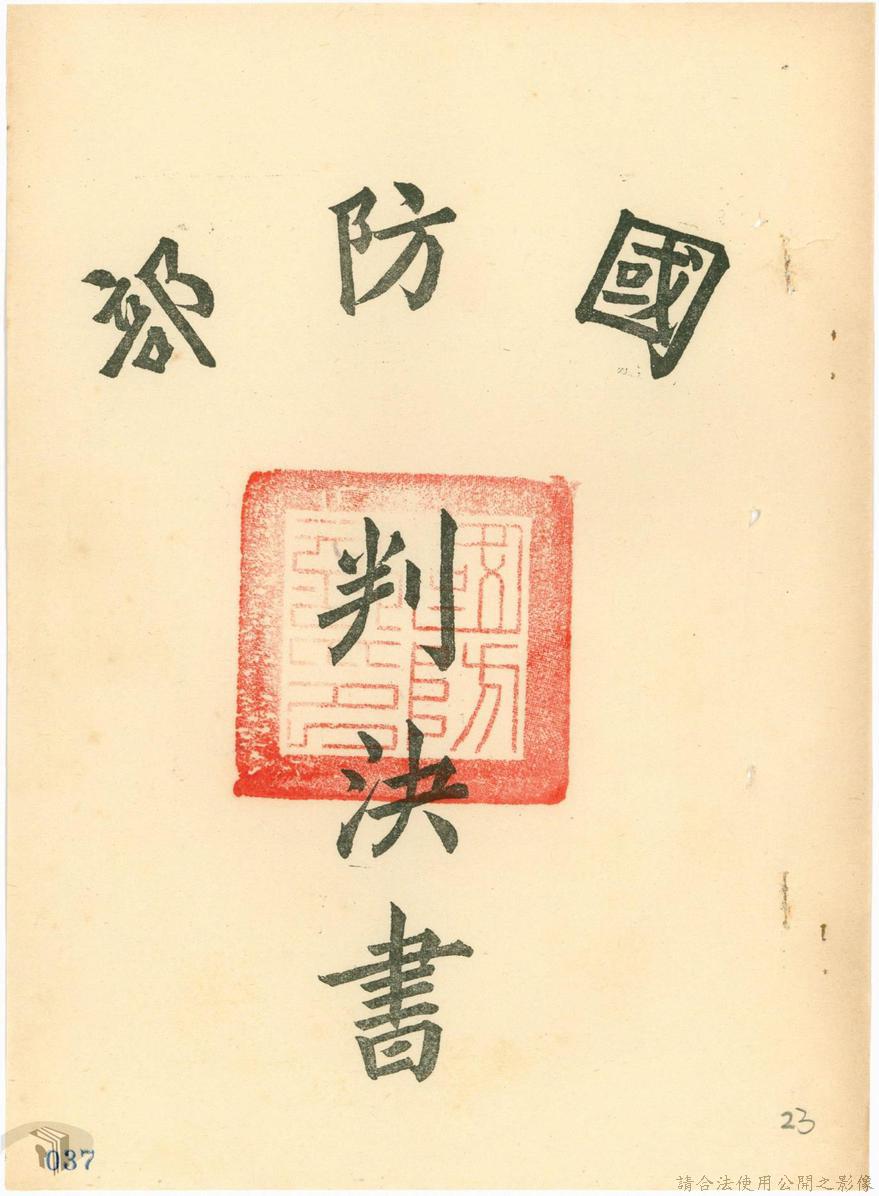 國防部
判決書
23
037
請合法使用公開之影像